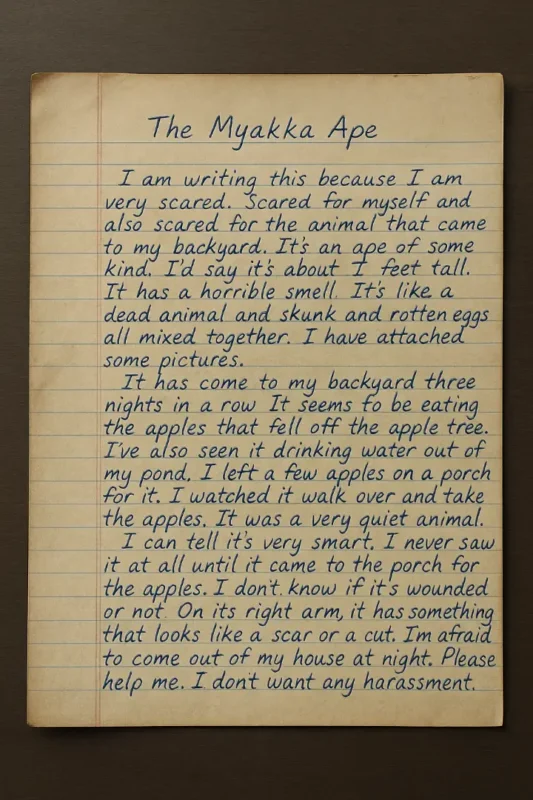 The Myakka Ape
I am writing this because I am
very scared. Scared for myself and
also scared for the animal that came
to my backyard. It's an ape of some
kind. I'd say it's about I feet tall.
It has a horrible smell. It's like a
dead animal and skunk and rotten eggs
all mixed together. I have attached
some pictures.
It has come to my backyard three
nights in a row It seems to be eating
the apples that fell off the apple tree.
I've also seen it drinking water out of
my pond. I left a few apples on a porch
for it. I watched it walk over and take
the apples. It was a very quiet animal.
I can tell it's very smart. I never saw
it at all until it came to the porch for
the apples. I don't. know if it's wounded
or not. On its right arm, it has something
that looks like a scar or a cut. I'm afraid
to come out of my house at night. Please
help me. I don't want any harassment.